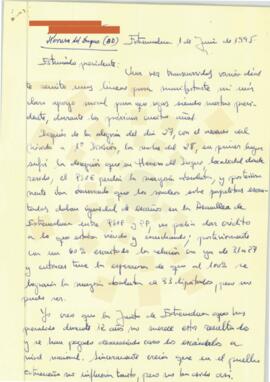 Herrera del Duque (BA) Extremadura 1 de Junio de 1995
Estimado presidente:
Una vez transcurridos varios días
te remito unas líneas para manifestarte mi más
claro apoyo moral para que sigas siendo nuestro presi-
dente, durante los próximos cuatro años.
Después de la alegría del día 27, con el ascenso del
Mérida a 1ª División, la noche del 28, en primer lugar
sufrí la decepción que en Herrera del Duque, localidad donde
resido, el PSOE perdía la mayoría absoluta, y posterior-
mente
daban igualdad de escaños en la Asamblea de
Extremadura entre PSOE y PP, no podía dar crédito
a lo que estaba viendo y escuchando; posteriormente
con un 60% escrutado la relación era ya de 31 a 27
y entonces tuve la esperanza de que al 100% se
lograría la mayoría absoluta de 33 diputados, pero no
pudo ser.
Yo creo que la Junta de Extremadura que has
presidido durante 12 años no merece este resultado
y se han pagado demasiado caro los escándalos a
nivel nacional. Sinceramente creía que en el pueblo
extremeño no influirían tanto, pero no ha sido así.